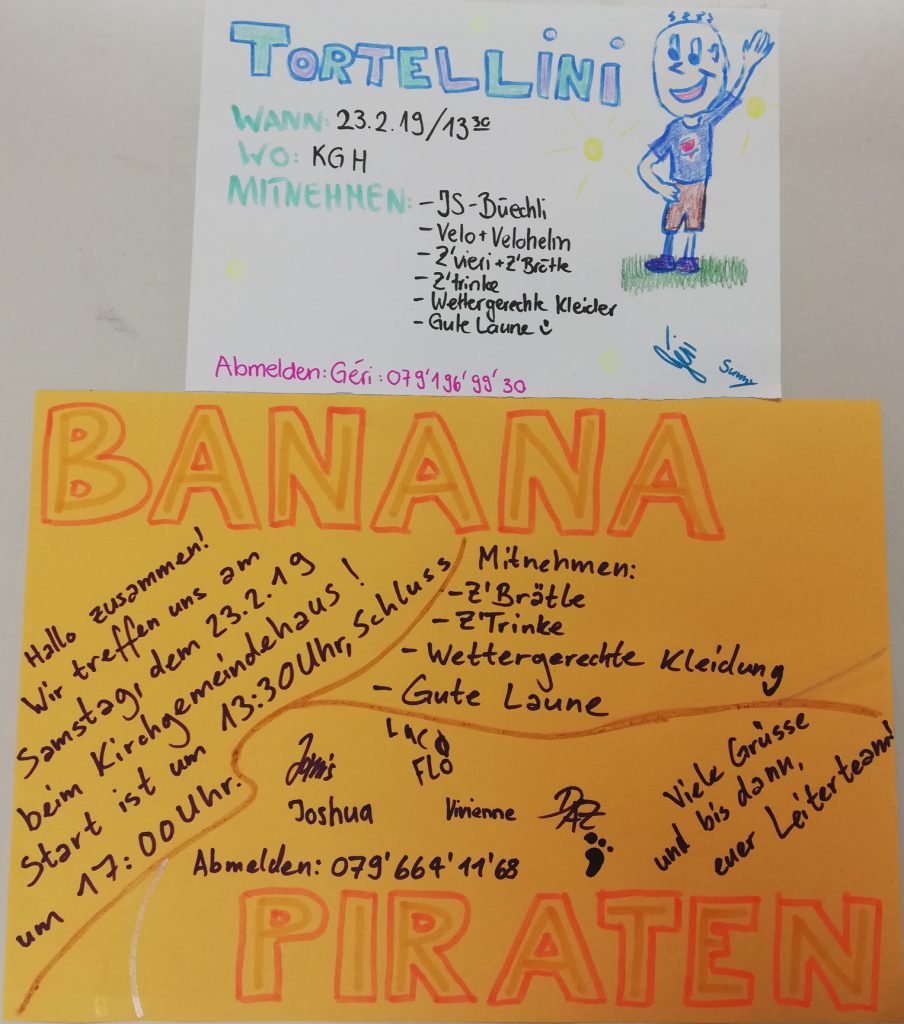 TORTELLINI
WANN: 23.2.19/13³⁰
WO: KGH
MITNEHMEN: - JS-Büechli
- Velo + Velohelm
- Z'vieri + Z'Brötle
- Z'trinke
- Wettergerechte Kleider
- Gute Laune
Abmelden: Géri: 079'196'99'30
Sunny
BANANA
Hallo zusammen!
Wir treffen uns am
Samstag, dem 23.2.19
beim Kirchgemeindehaus!
Start ist um 13:30 Uhr, Schluss
um 17:00 Uhr.
Mitnehmen:
- Z'Brätle
- Z'Trinke
- Wettergerechte Kleidung
- Gute Laune
FLO
Joshua
Vivienne
DAZ
Viele Grüsse
und bis dann,
euer Leiterteam!
Abmelden: 079'664'11'68
PIRATEN